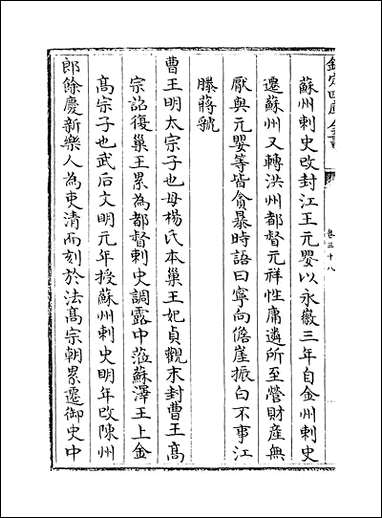 欽定四庫全書
卷三十八
蘇州刺史改封江王元嬰以永徽三年自金州刺史
遷蘇州又轉洪州都督元祥性庸遴所至營財産無
厭與元嬰等皆貪暴時語曰寧向儋崖振白不事江
滕蔣虢
曹王明太宗子也母楊氏本巢王妃貞觀末封曹王高
宗詔復巢王累為都督刺史調露中蒞蘇澤王上金
髙宗子也武后文明元年授蘇州刺史明年改陳州
郎餘慶新樂人為吏清而刻於法髙宗朝累遷御史中